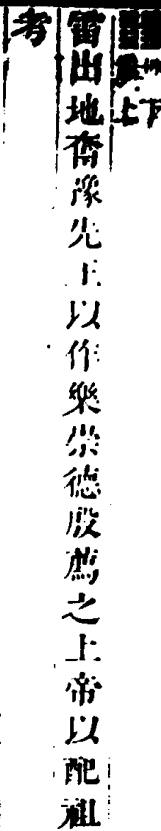 坤下
震上
雷出地奮豫先王以作樂崇德殷薦之上帝以配祖
考